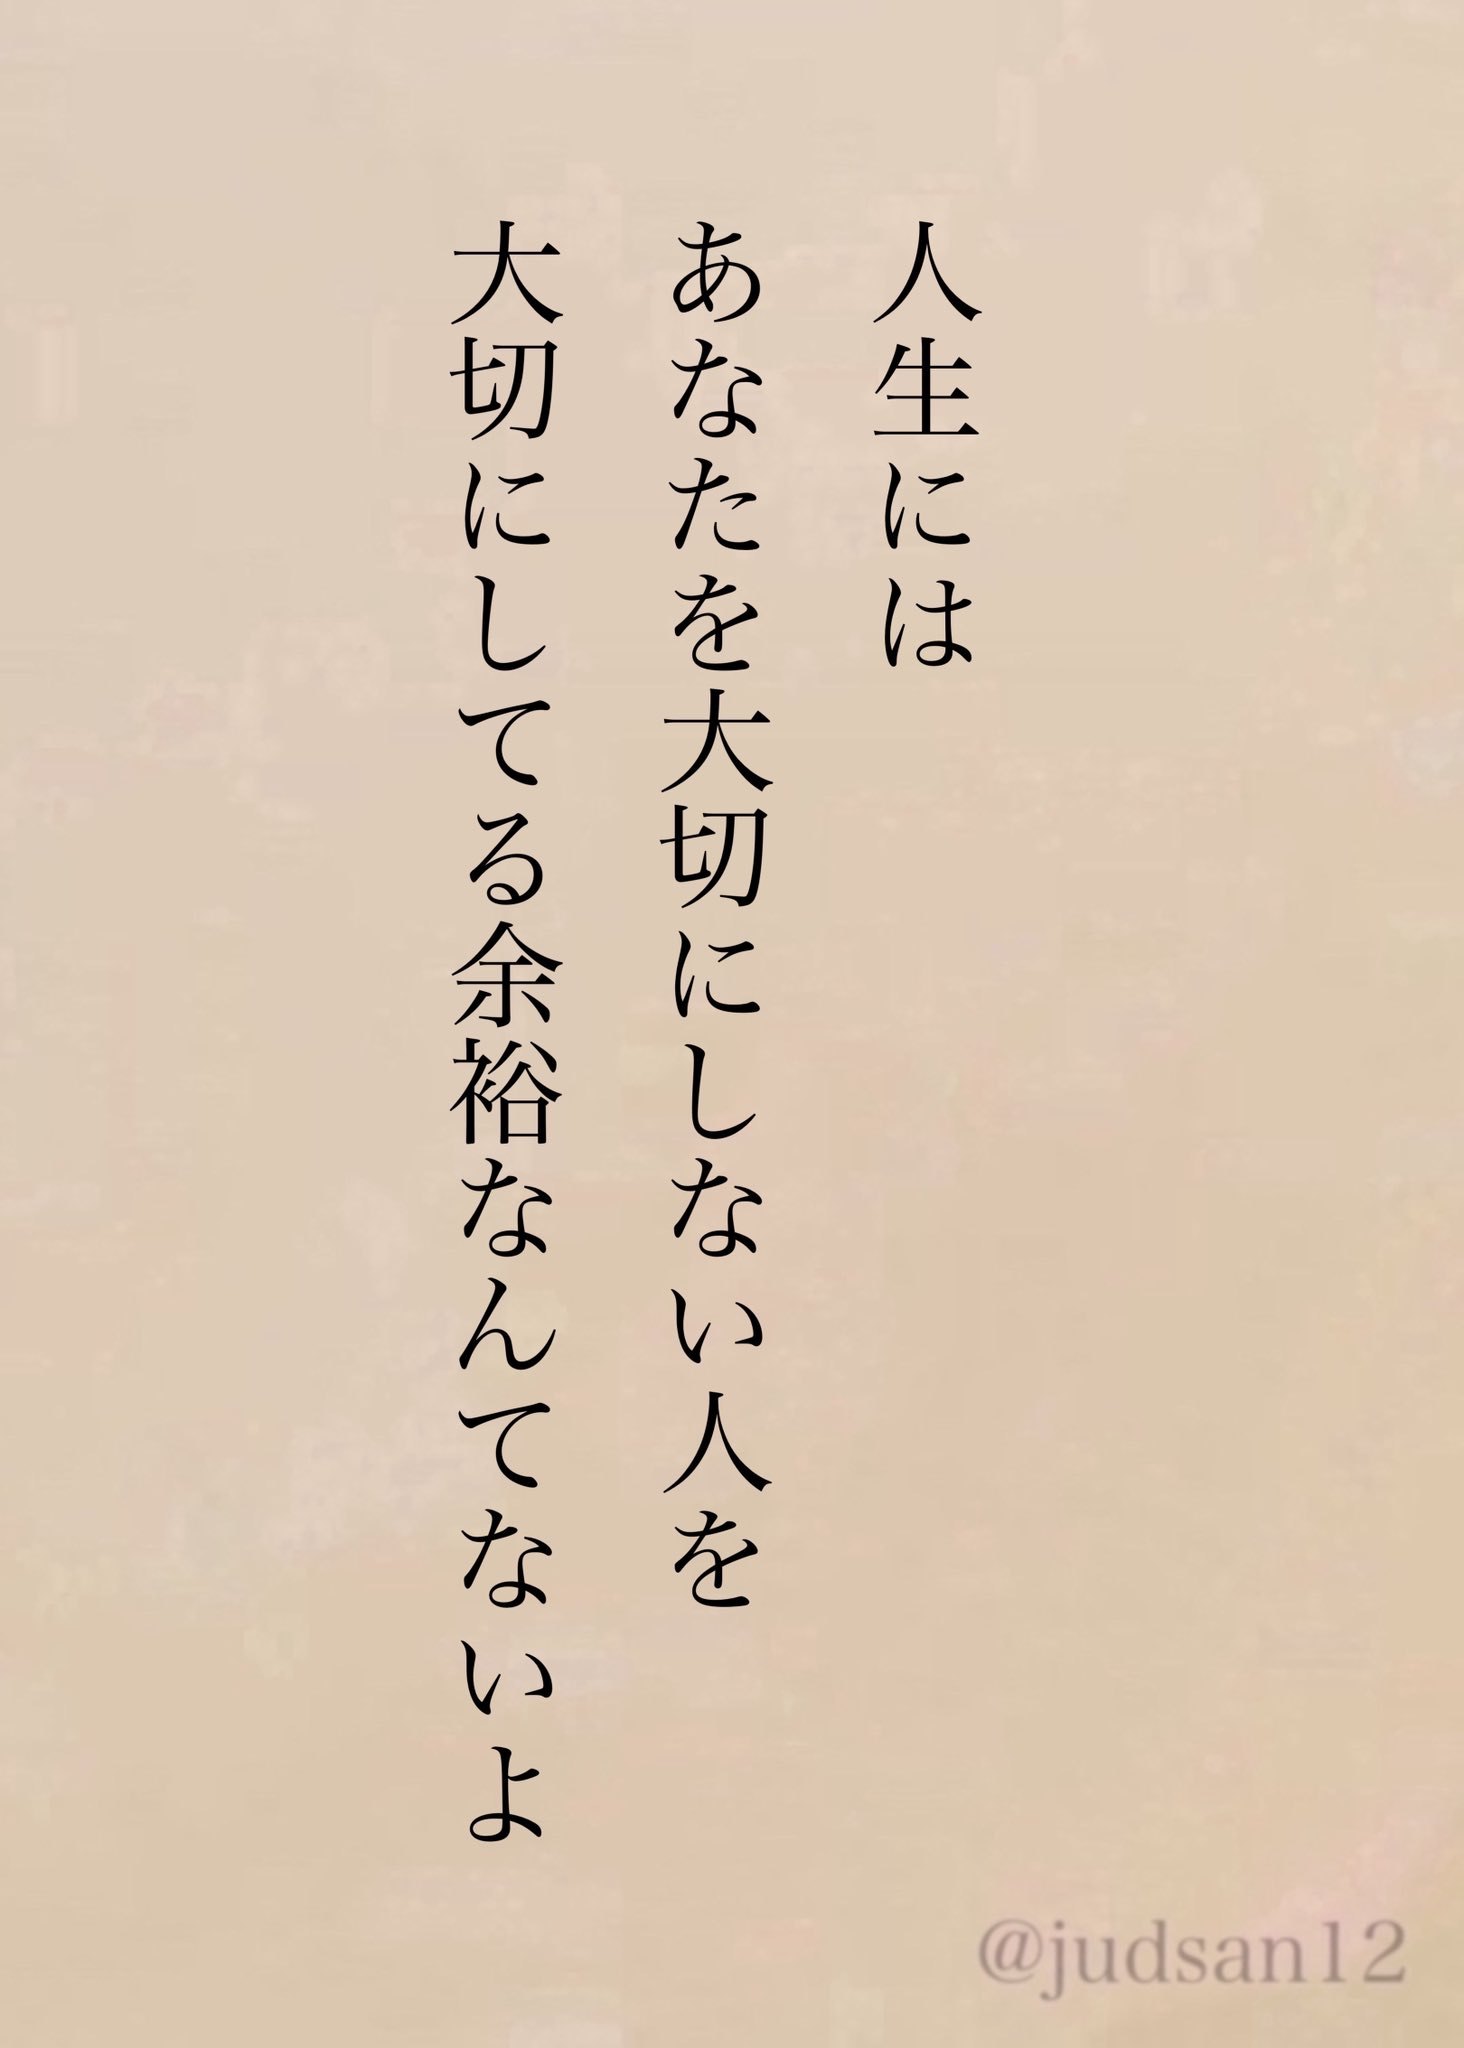 人生には
あなたを大切にしない人を
大切にしてる余裕なんてないよ
@judsan12